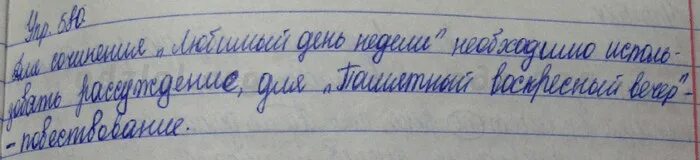 Упр. 580.
Для сочинения „Любимый день недели" необходимо исполь-
зовать рассуждение, для „Памятный воскресный вечер"-
- повествование.